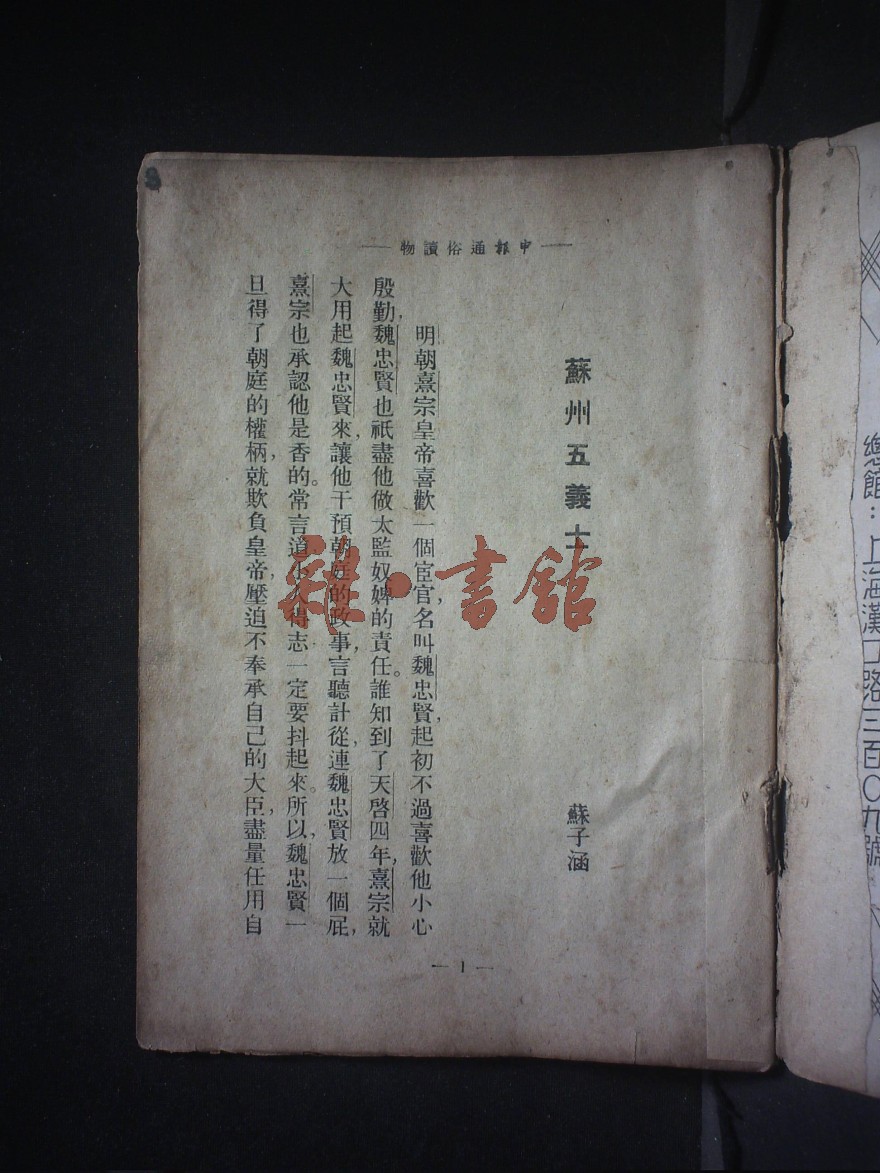 申報通俗讀物
蘇州五義士
蘇子涵
明朝熹宗皇帝喜歡一個宦官，名叫魏忠賢，起初不過喜歡他小心
殷勤，魏忠賢也祇盡他做太監奴婢的責任。誰知到了天啓四年，熹宗就
大用起魏忠賢來，讓他干預朝庭的政事，言聽計從，連魏忠賢放一個屁，
熹宗也承認他是香的。常言道小人得志一定要抖起來。所以，魏忠賢一
旦得了朝庭的權柄，就欺負皇帝，壓迫不奉承自己的大臣，盡量任用自
— 1 —
總館：上海漢口路三百〇九號
雜·書館